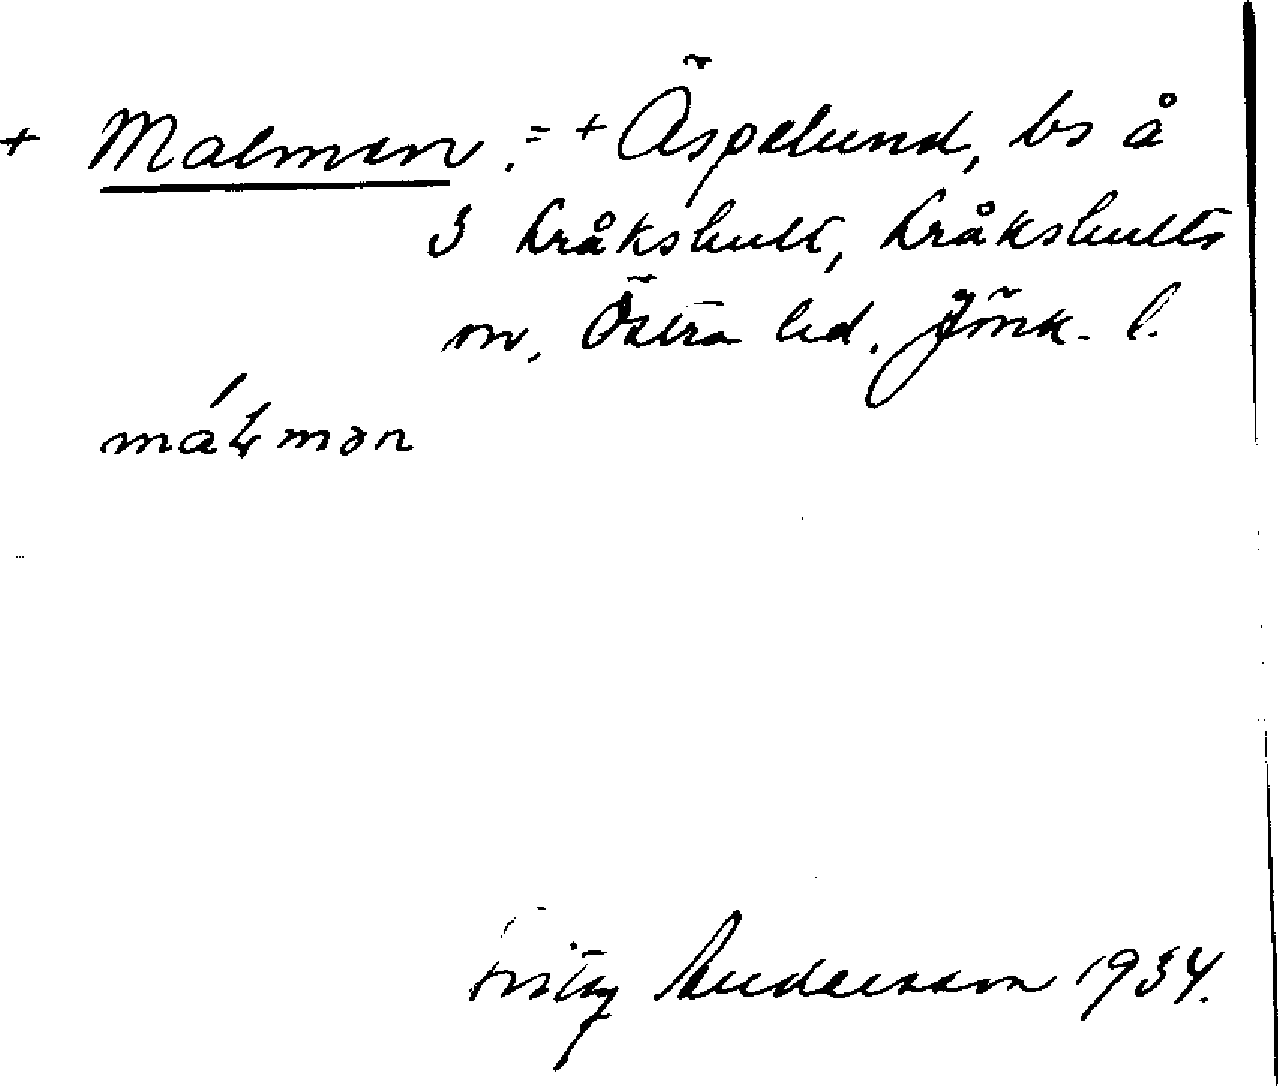 + Malmen. = + Äspelund, bs å
S Kråkshult, Kråkshults
sn, Östra hd. Jönk. l.
máɫmən
Fritz Andersson 1934.